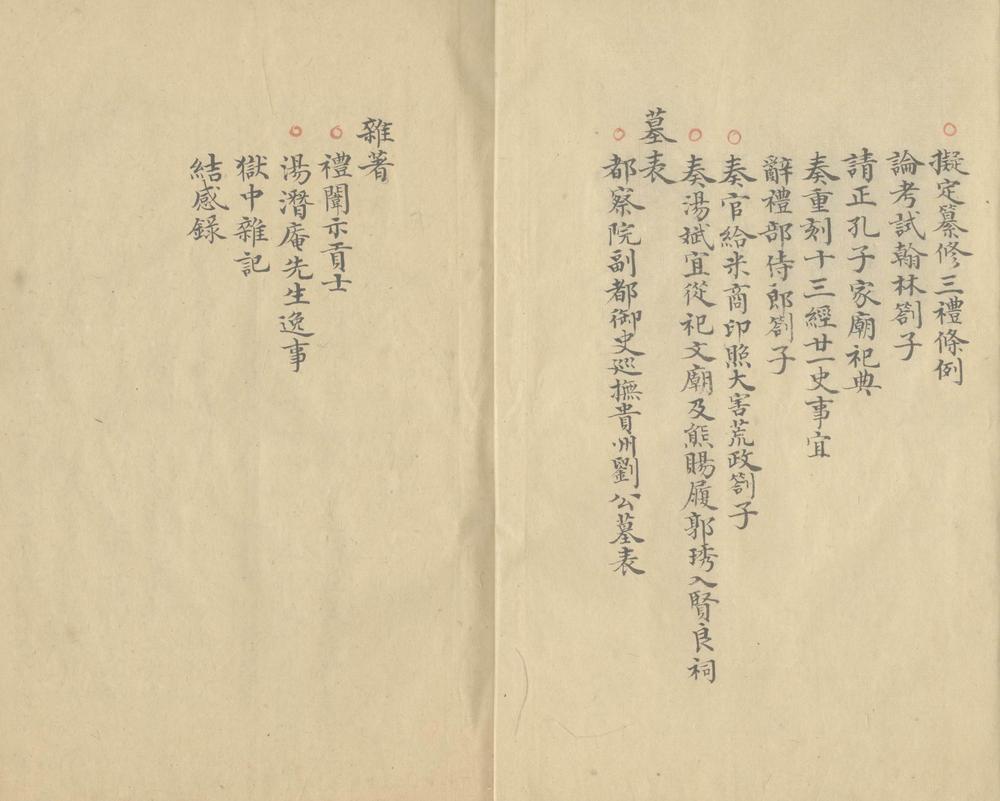 擬定纂修三禮條例
論考試翰林劄子
請正孔子家廟祀典
奏重刻十三經廿一史事宜
辭禮部侍郎劄子
奏官給米商印照大害荒政劄子
奏湯斌宜從祀文廟及熊賜履郭琇入賢良祠
墓表
都察院副都御史巡撫貴州劉公墓表
雜著
禮闈示貢士
湯潛庵先生逸事
獄中雜記
結感錄